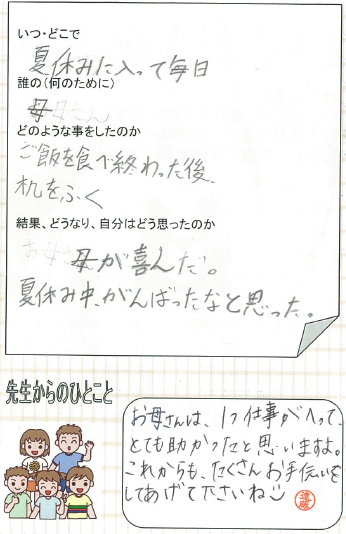 いつ・どこで
夏休みに入って毎日
誰の(何のために)
母
どのような事をしたのか
ご飯を食べ終わった後、
机をふく
結果、どうなり、自分はどう思ったのか
母が喜んだ。
夏休み中、がんばったなと思った。
先生からのひとこと
お母さんは、1つ仕事がへって、
とても助かったと思いますよ。
これからも、たくさんお手伝いを
してあげて下さいね